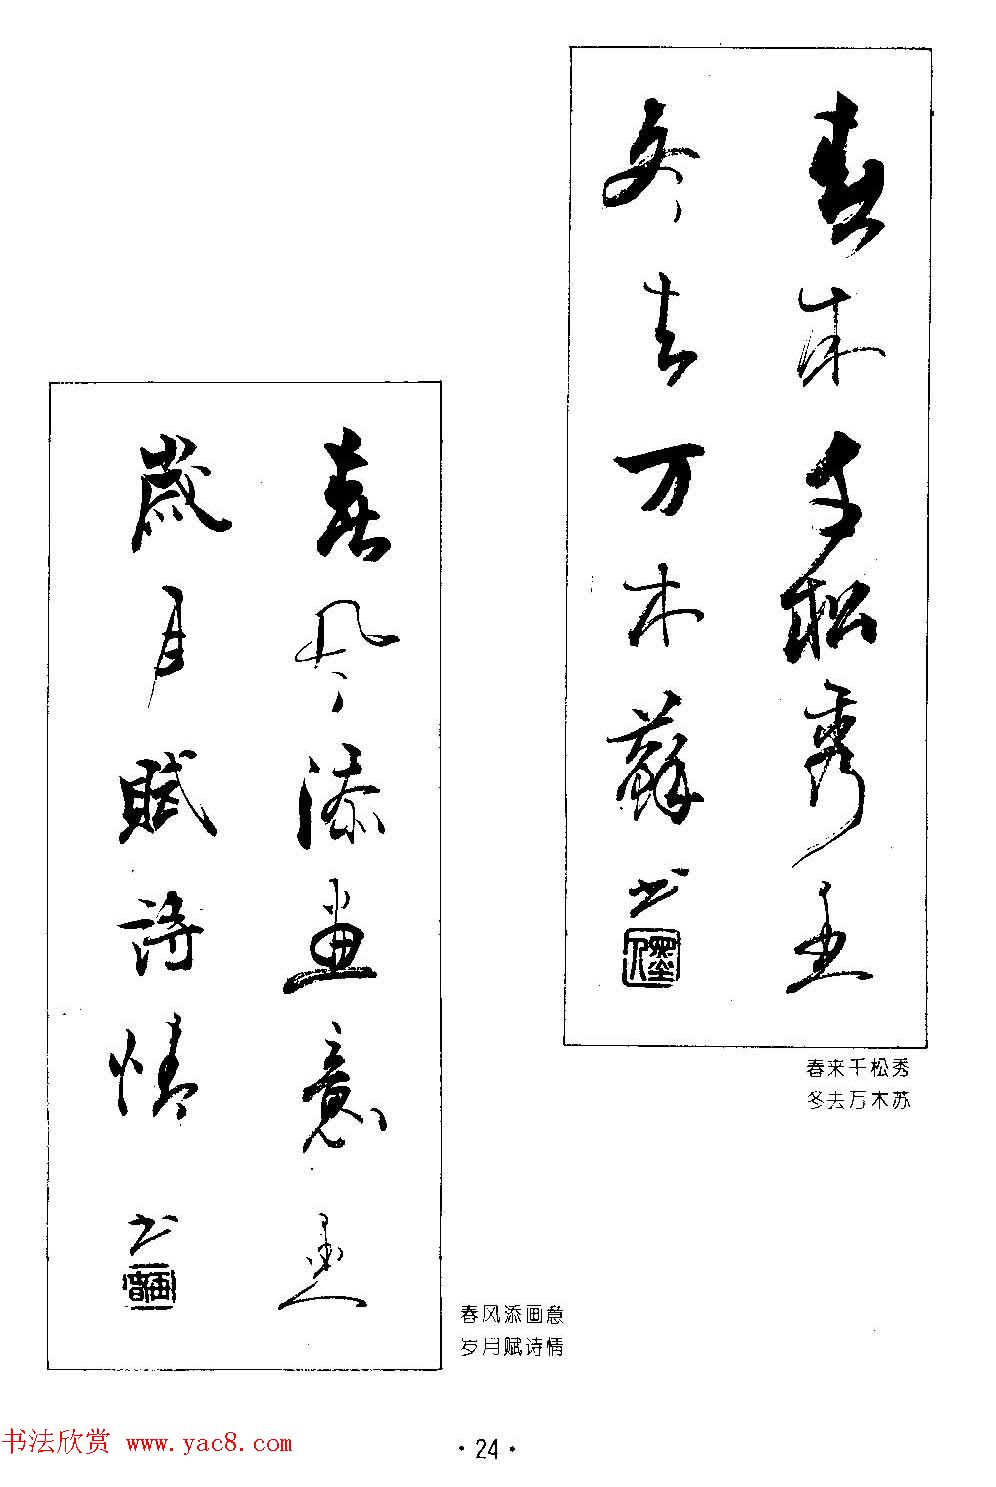 春来千松秀
冬去万木蘇
书
春来千松秀
冬去万木苏
春风添画意
歲月賦詩情
书
春风添画意
岁月赋诗情
书法欣赏 www.yac8.com
·24·